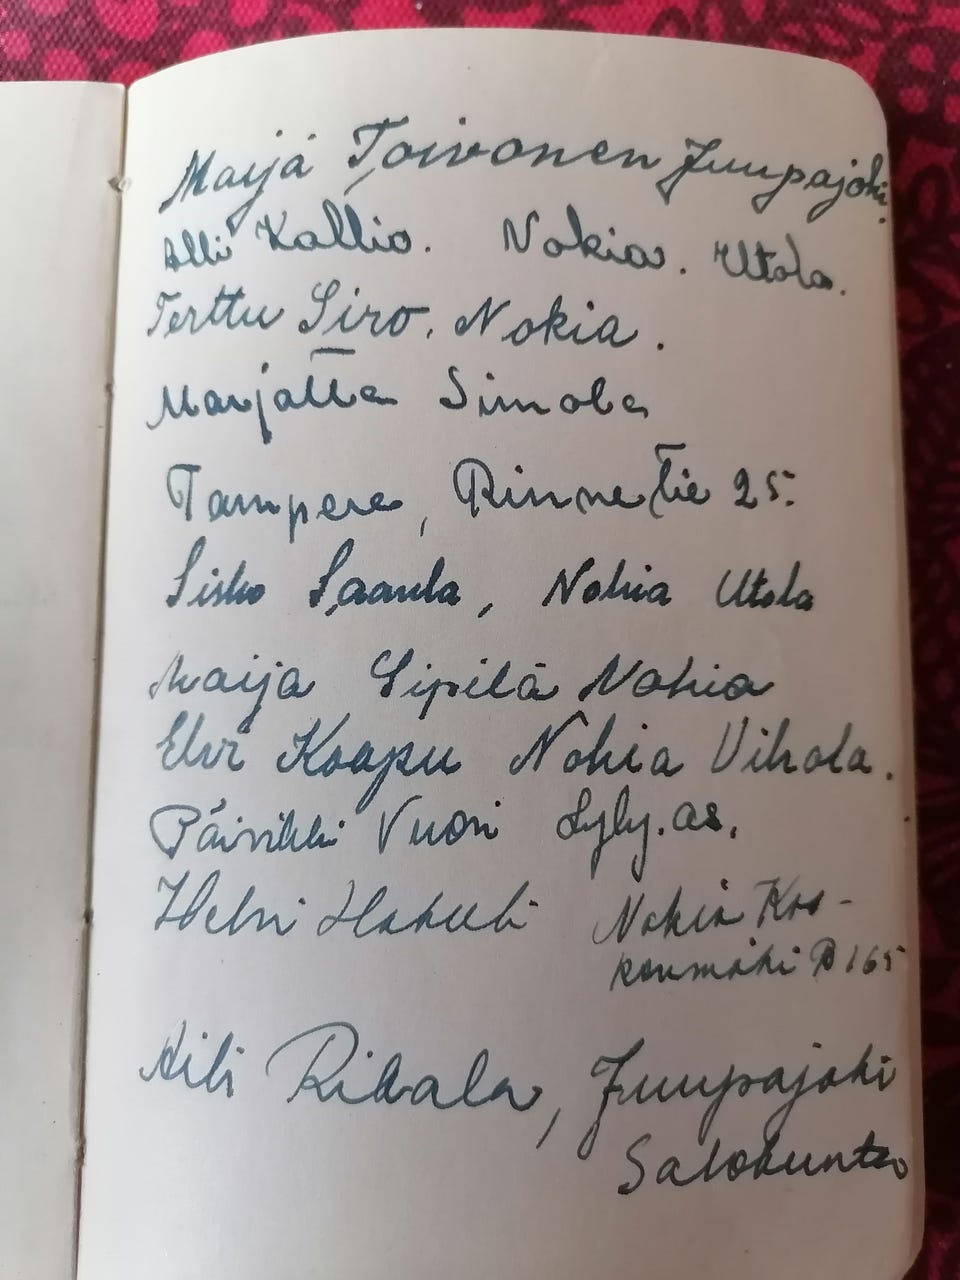 Maija Toivonen Juupajoki.
Alli Kallio. Nokia. Utola.
Terttu Siro, Nokia.
Marjatta Simola
Tampere, Rinnetie 25.
Sisko Saarela, Nokia Utola
Maija Sipilä Nokia
Elvi Knapu Nokia Vihola.
Päivikki Vuori Lyly.as.
Helvi Nokia Kos-
kenmäki B 165
Aili Rikala, Juupajoki
Salokunta